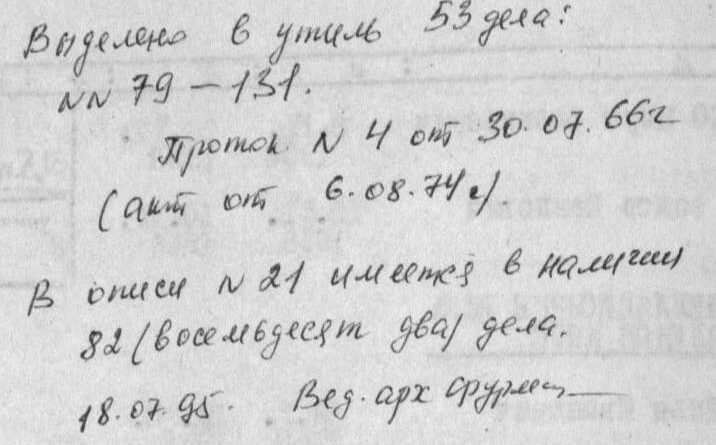 Выделено в утиль 53 дела:
NN 79 – 131.
Проток. N 4 от 30.07.66г
(акт от 6.08.74г)
В описи N 21 имеется в наличии
82 (восемьдесят два) дела.
18.07.95. Вед. арх